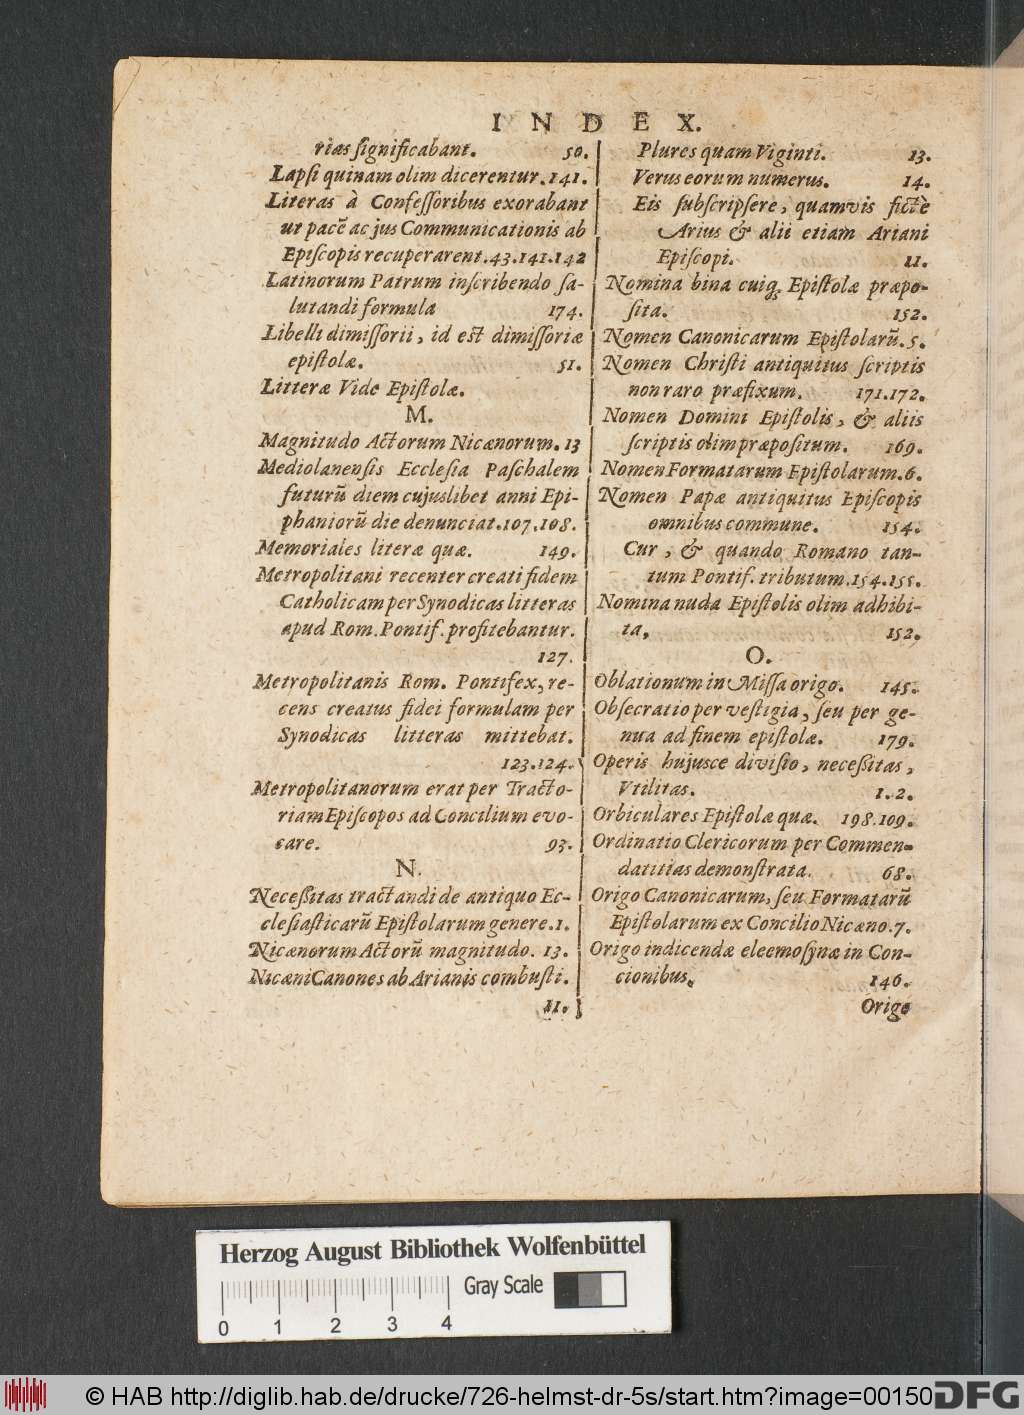 INDEX.
rias significabant. 50.
Lapsi quinam olim dicerentur. 141.
Literas à Confessoribus exorabant
ut pacē ac jus Communicationis ab
Episcopis recuperarent. 43. 141. 142
Latinorum Patrum inscribendo sa-
lutandi formula 174.
Libelli dimissorii, id est dimissoriæ
epistolæ. 51.
Litteræ Vide Epistolæ.
M.
Magnitudo Actorum Nicænorum. 13
Mediolanensis Ecclesia Paschalem
futurū diem cujuslibet anni Epi-
phaniorū die denunciat. 107. 108.
Memoriales literæ quæ. 149.
Metropolitani recenter creati fidem
Catholicam per Synodicas litteras
apud Rom. Pontif. profitebantur.
127.
Metropolitanis Rom. Pontifex, re-
cens creatus fidei formulam per
Synodicas litteras mittebat.
123. 124.
Metropolitanorum erat per Tracto-
riam Episcopos ad Concilium evo-
care. 93.
N.
Necessitas tractandi de antiquo Ec-
clesiasticarū Epistolarum genere. 1.
Nicænorum Actorū magnitudo. 13.
Nicæni Canones ab Arianis combusti.
11.
Plures quam Viginti. 13.
Verus eorum numerus. 14.
Eis subscripsere, quamvis fictè
Arius & alii etiam Ariani
Episcopi. 11.
Nomina bina cuiq; Epistolæ præpo-
sita. 152.
Nomen Canonicarum Epistolarū. 5.
Nomen Christi antiquitus scriptis
non raro præfixum. 171. 172.
Nomen Domini Epistolis, & aliis
scriptis olim præpositum. 169.
Nomen Formatarum Epistolarum. 6.
Nomen Papæ antiquitus Episcopis
omnibus commune. 154.
Cur, & quando Romano tan-
tum Pontif. tributum. 154. 155.
Nomina nuda Epistolis olim adhibi-
ta. 152.
O.
Oblationum in Missa origo. 145.
Obsecratio per vestigia, seu per ge-
nua ad finem epistolæ. 179.
Operis hujusce divisio, necessitas,
Vtilitas. 1. 2.
Orbiculares Epistolæ quæ. 198. 109.
Ordinatio Clericorum per Commen-
datitias demonstrata. 68.
Origo Canonicarum, seu Formatarū
Epistolarum ex Concilio Nicæno. 7.
Origo indicendæ eleemosynæ in Con-
cionibus. 146.
Origo
Herzog August Bibliothek Wolfenbüttel
Gray Scale
0 1 2 3 4
© HAB http://diglib.hab.de/drucke/726-helmst-dr-5s/start.htm?image=00150
DFG